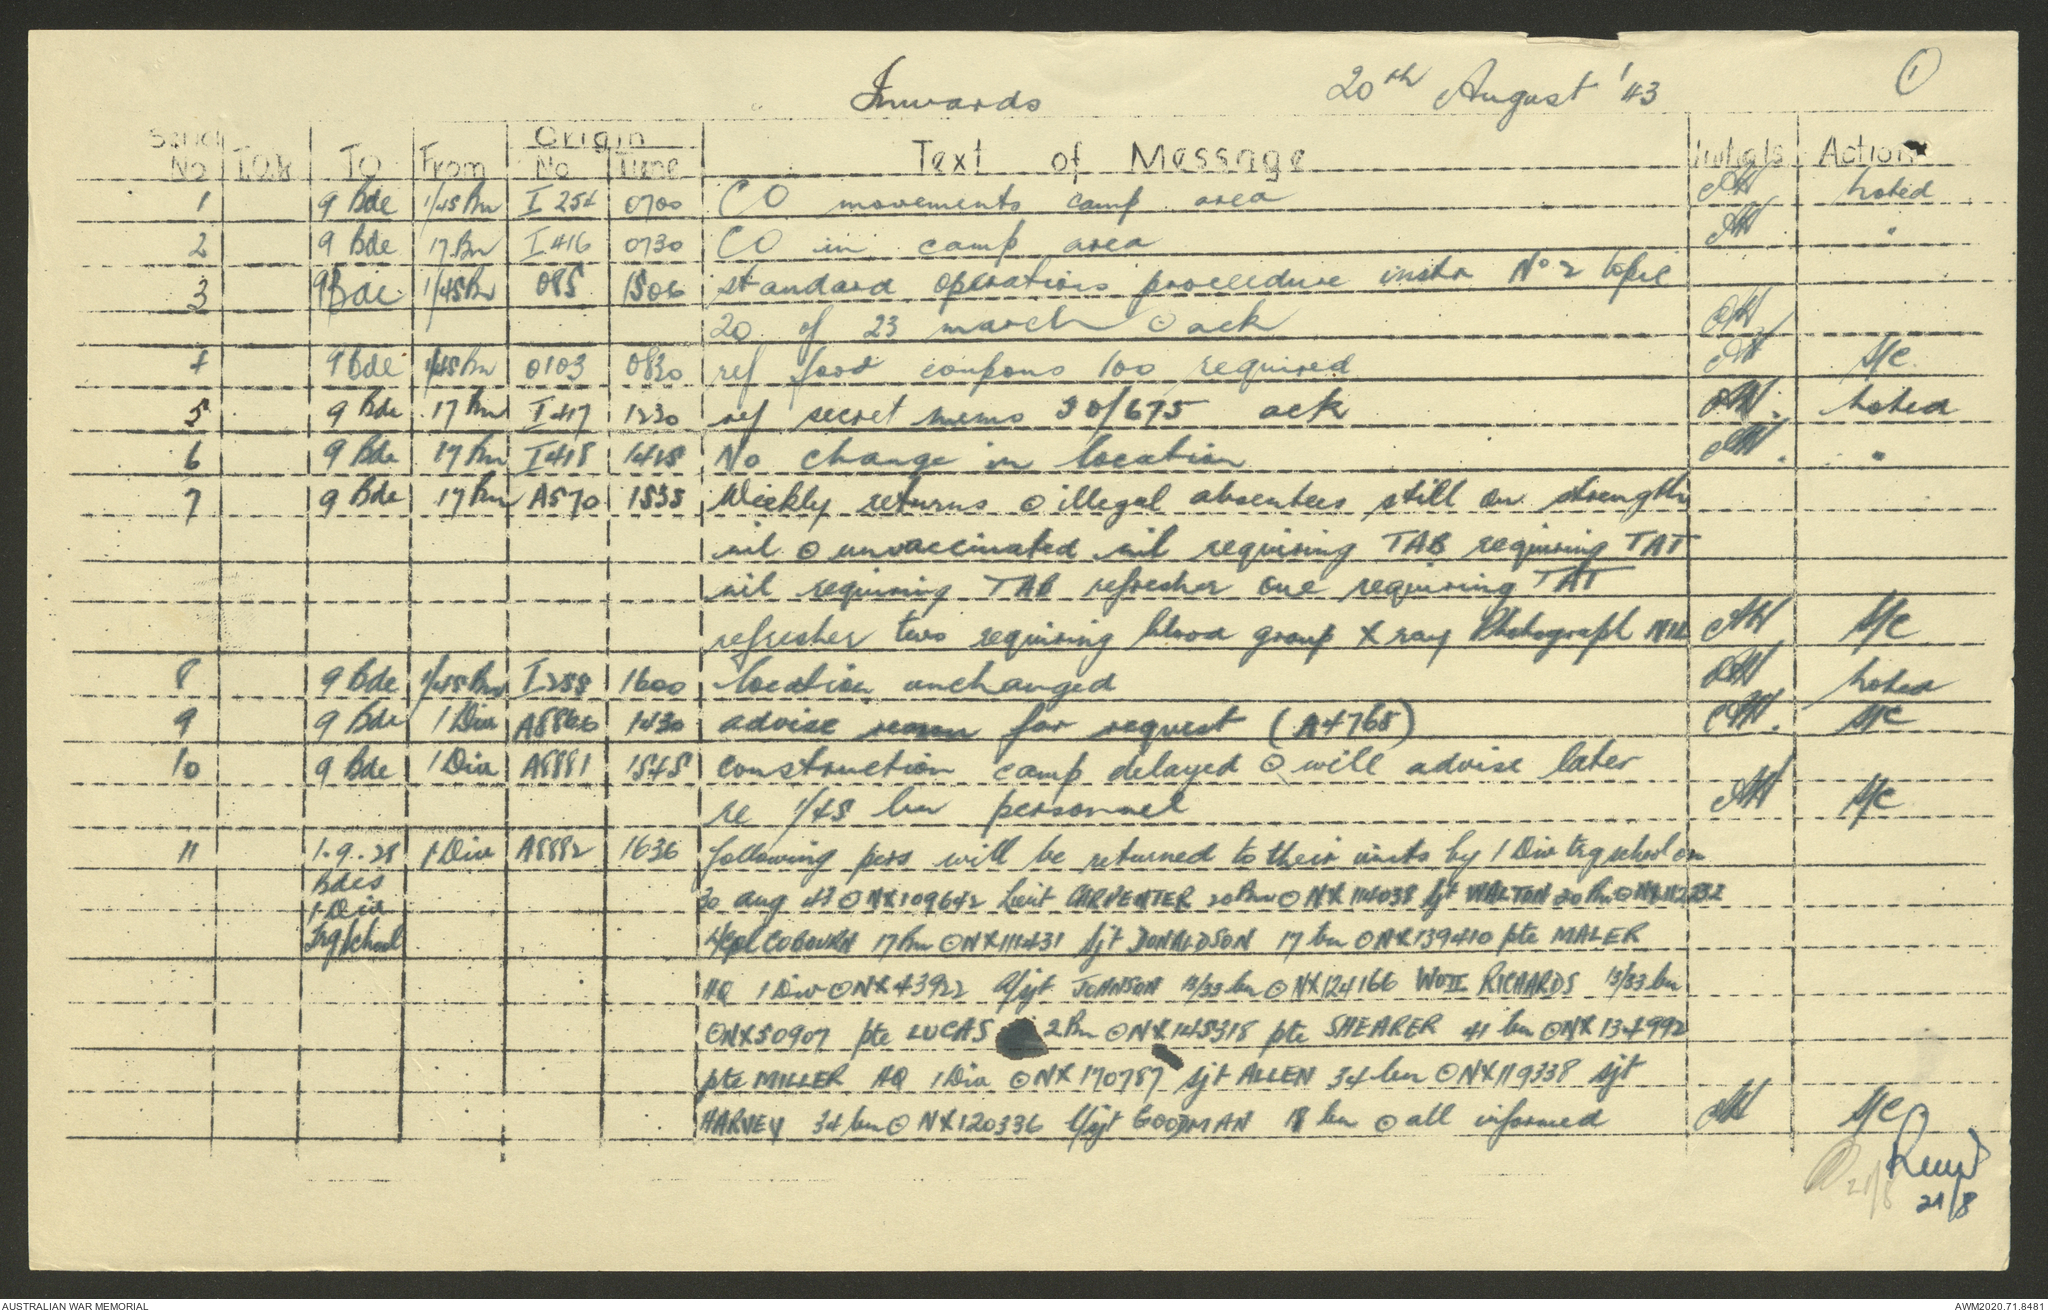 Inwards 20th August '43 1
Serial Origin
No TOR TO From No Time Text of Message Initials Action
1 9 Bde 1/45 Bn I 254 0700 CO movements camp area noted
2 9 Bde 17 Bn I 416 0730 CO in camp area "
3 9 Bde 1/45 Bn 085 1506 standard operations proceedure instn No 2
20 of 23 march ⊙ ack
4 9 Bde 1/45 Bn 0103 0830 ref food coupons 100 required S/C
5 9 Bde 17 Bn I 417 1230 ref secret memo 30/675 ack noted
6 9 Bde 17 Bn I 418 1415 No change in location "
7 9 Bde 17 Bn A570 1535 Weekly returns ⊙ illegal absentees still on strength
nil ⊙ unvaccinated nil requiring TAB requiring TAT
nil requiring TAB refresher one requiring TAT
refresher two requiring blood group X ray Photograph NIL S/C
8 9 Bde 1/45 Bn 1600 location unchanged noted
9 9 Bde 1 Div 1430 advise for request (A4765) S/C
10 9 Bde 1 Div A8881 1545 construction camp delayed ⊙ will advise later
re 1/45 bn personnel S/C
11 1.9.28 1 Div A8882 1636 following pers will be returned to their units by 1 Div trg school on
Bdes 30 aug 43 ⊙ NX109642 Lieut CARPENTER 20 Bn ⊙ NX114038 Sjt WALTON 20 Bn ⊙
1 Div
Trg School L/Cpl COBOURN 17 Bn ⊙ NX111431 Sjt DONALDSON 17 bn ⊙ NX139410 pte MALER
HQ 1 Div ⊙ NX43922 A/sjt JOHNSON 13/33 bn ⊙ NX124166 WOII RICHARDS 13/33 bn
⊙ NX50907 pte LUCAS 2 Bn ⊙ NX145318 pte SHEARER 41 bn ⊙ NX134992
pte MILLER HQ 1 Div ⊙ NX170787 sjt ALLEN 34 bn ⊙ NX119338 sjt
HARVEY 34 bn ⊙ NX120336 L/sjt GOODMAN 18 bn ⊙ all informed S/C
21/8 21/8
AUSTRALIAN WAR MEMORIAL AWM2020.71.8481